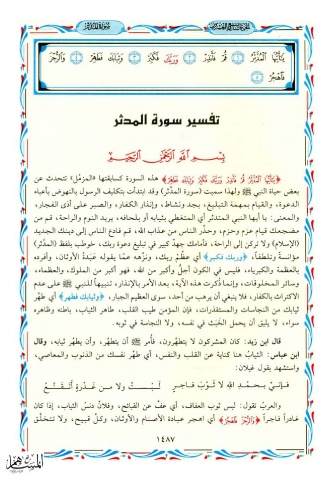 سورة المدثر
يَٰٓأَيُّهَا الْمُدَّثِّرُ ١ قُمْ فَأَنذِرْ ٢ وَرَبَّكَ فَكَبِّرْ ٣ وَثِيَابَكَ فَطَهِّرْ ٤ وَالرُّجْزَ
فَاهْجُرْ ٥
تفسير سورة المدثر
بِسْمِ اللَّهِ الرَّحْمَٰنِ الرَّحِيمِ
﴿يَٰٓأَيُّهَا الْمُدَّثِّرُ قُمْ فَأَنذِرْ وَرَبَّكَ فَكَبِّرْ وَثِيَابَكَ فَطَهِّرْ﴾ هذه السورة كسابقتها «المزمل» تتحدث عن
بعض حياة النبي ﷺ ولهذا سميت (سورة المدثر) وقد ابتدأت بتكليف الرسول بالنهوض بأعباء
الدعوة، والقيام بمهمة التبليغ، بجد ونشاط، وإنذار الكفار، والصبر على أذى الفجار،
والمعنى: يا أيها النبي المتدثر أي المتغطي بثيابه أو بلحافه، يريد النوم والراحة، قم من
مضجعك قيام عزم وحزم، وحذّر الناس من عذاب الله، قم فادع الناس إلى دينك الجديد
(الإسلام) ولا تركن إلى الراحة، فأمامك جهدٌ كبير في تبليغ دعوة ربك، خوطب بلفظ (المدثر)
مؤانسةً وتلطفاً، ﴿وربك فكبر﴾ أي عظّم ربك، ونزّهه عمّا يقوله عَبَدةُ الأوثان، وأفرده
بالعظمة والكبرياء، فليس في الكون أجلّ وأكبر من الله، فهو أكبر من الملوك والعظماء،
وسائر المخلوقات، وإنما ذُكرت هذه الآية، بعد الأمر بالإنذار، تنبيهاً للنبي ﷺ على عدم
الاكتراث بالكفار، فلا ينبغي أن يرهب من أحد، سوى العظيم الجبار، ﴿وثيابك فطهر﴾ أي طهّر
ثيابك من النجاسات والمستقذرات، فإن المؤمن طيب القلب، طاهر الثياب، باطنه وظاهره
سواء، لا يليق أن يحمل الخبث في نفسه، ولا النجاسة في ثوبه.
قال ابن زيد: كان المشركون لا يتطهرون، فأُمر ﷺ أن يتطهر، وأن يطهّر ثيابه، وقال
ابن عباس: الثيابُ هنا كناية عن القلب والنفس، أي طهّر نفسك من الذنوب والمعاصي،
واستشهد بقول غيلان:
فإنّي بحمد الله لا ثوبَ فاجرٍ لبستُ ولا من غَدرةٍ أتقنّعُ
والعرب تقول: لبس ثوب العفاف، أي عفّ عن القبائح، وفلان دنسُ الثياب، إذا كان
غادراً فاجراً ﴿وَالرُّجْزَ فَاهْجُرْ﴾ أي اهجر عبادة الأصنام والأوثان، وكلَّ قبيح، ولا تتخلّق
١٤٨٧